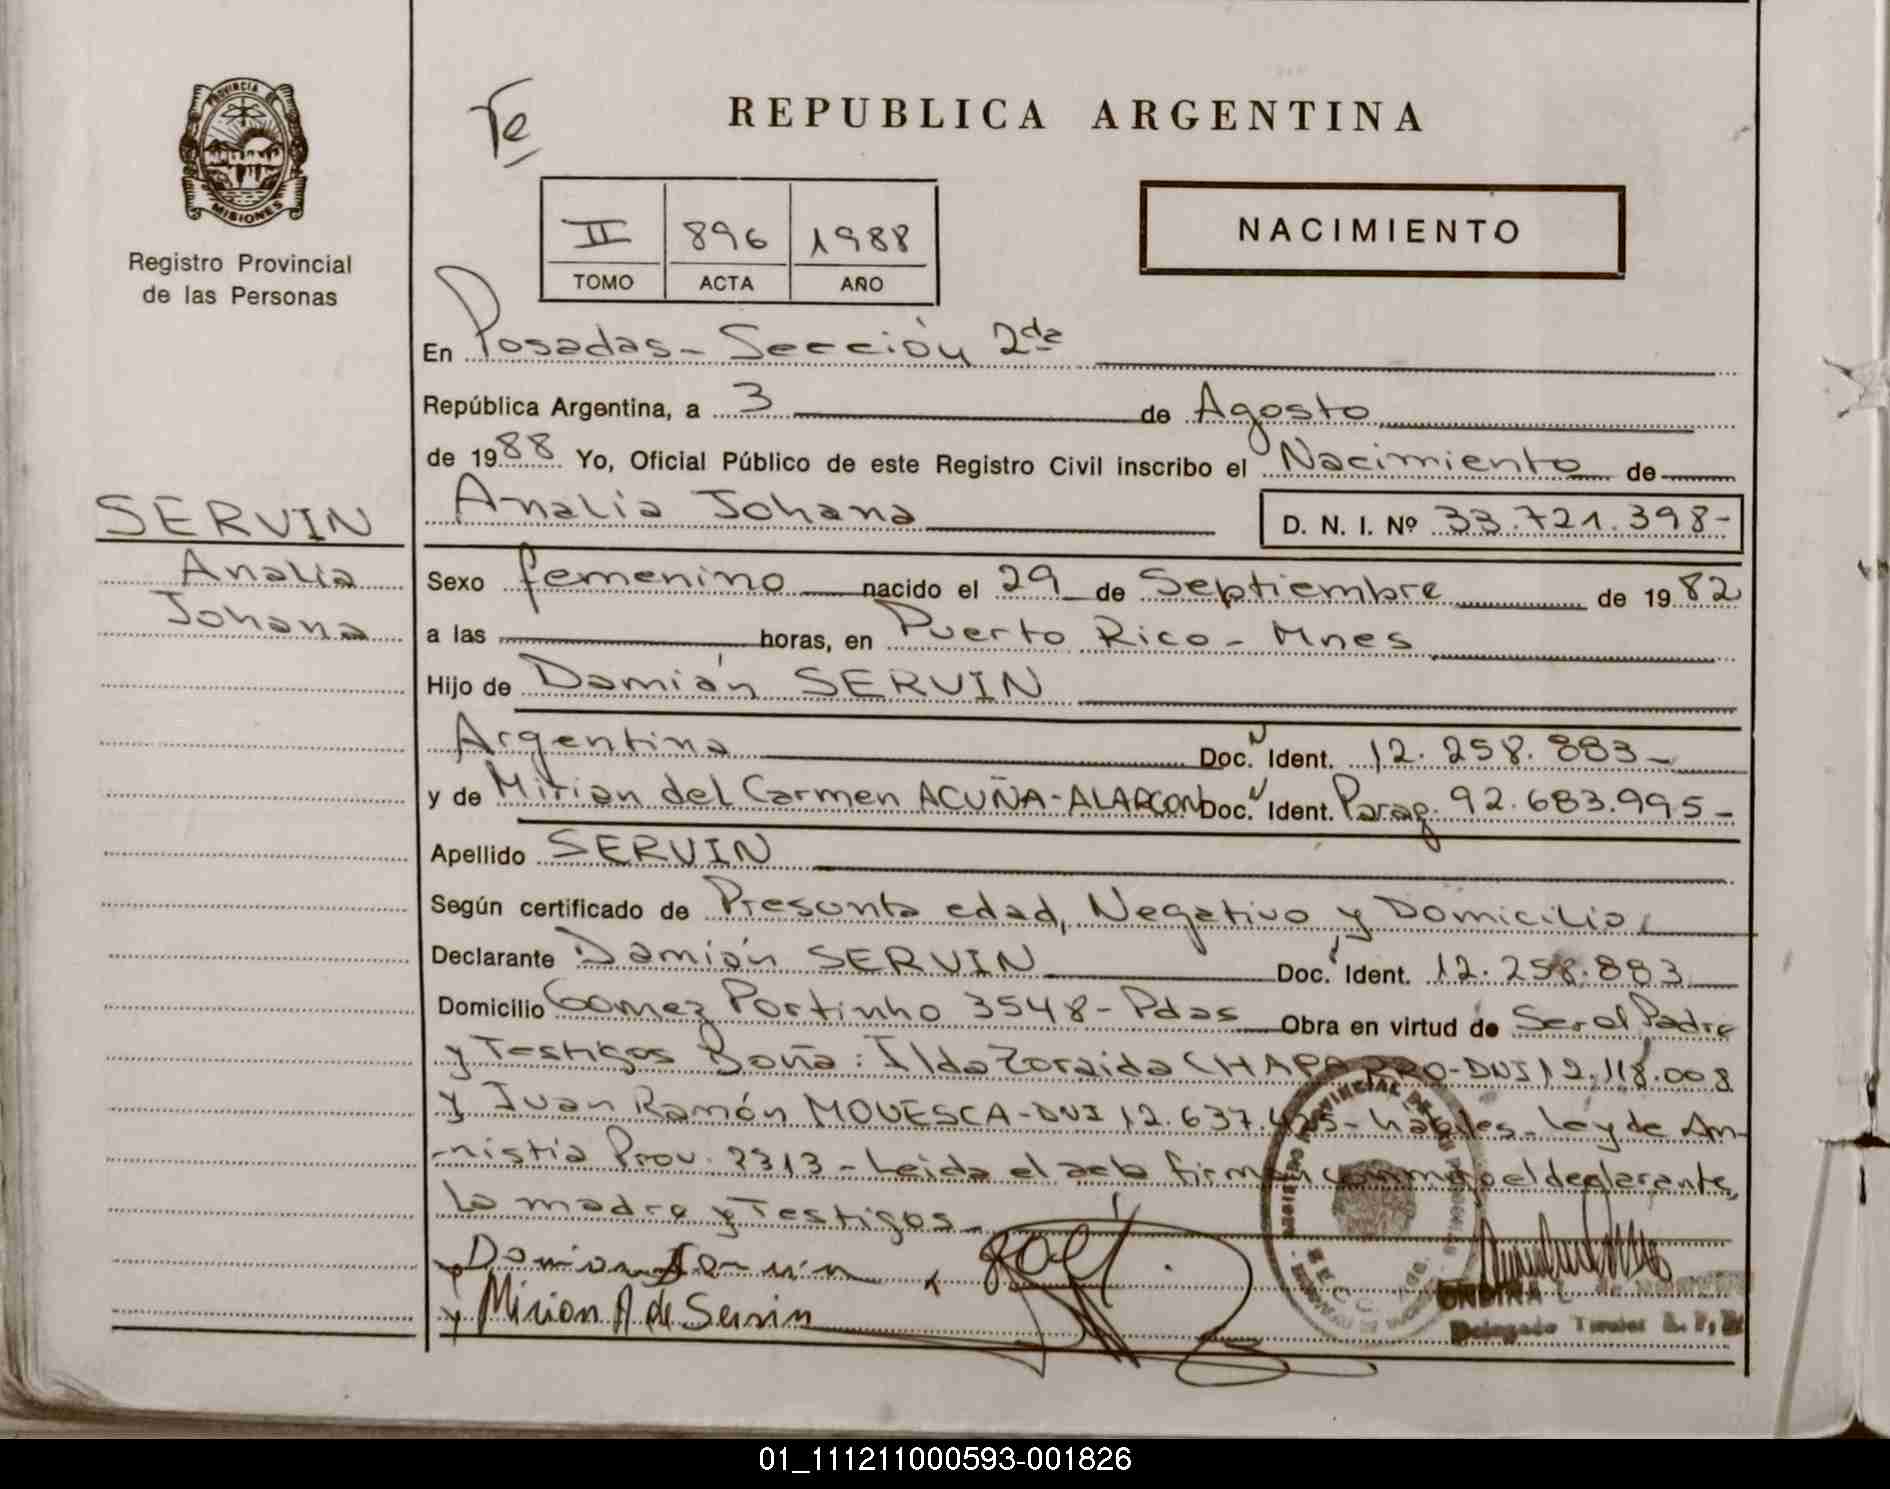 PROVINCIA DE
MISIONES
Registro Provincial
de las Personas
Te
REPUBLICA ARGENTINA
II 896 1988
TOMO ACTA AÑO
NACIMIENTO
En Posadas - Sección 2da
República Argentina, a 3 de Agosto
de 1988 Yo, Oficial Público de este Registro Civil inscribo el Nacimiento de
SERVIN
Analia
Johana
Analia Johana D. N. I. Nº 33.721.398-
Sexo femenino nacido el 29 de Septiembre de 1982
a las horas, en Puerto Rico - Mnes
Hijo de Damián SERVIN
Argentina Doc. Ident. 12.258.883-
y de Mirian del Carmen ACUÑA-ALARCON Doc. Ident. Parag. 92.683.995-
Apellido SERVIN
Según certificado de Presunta edad, Negativo y Domicilio,
Declarante Damián SERVIN Doc. Ident. 12.258.883
Domicilio Gomez Portinho 3548 - Pdas Obra en virtud de Ser el Padre
y Testigos Doña: Ilda Zoraida CHAPARRO-DNI 12.118.008
y Juan Ramón MOVESCA-DNI 12.637.425- hábiles- Ley de Am-
-nistía Prov. 2313 - Leida el acta firman conmigo el declarante,
la madre y Testigos-
Damian Servin
Mirion A de Servin
Delegado Titular
01_111211000593-001826